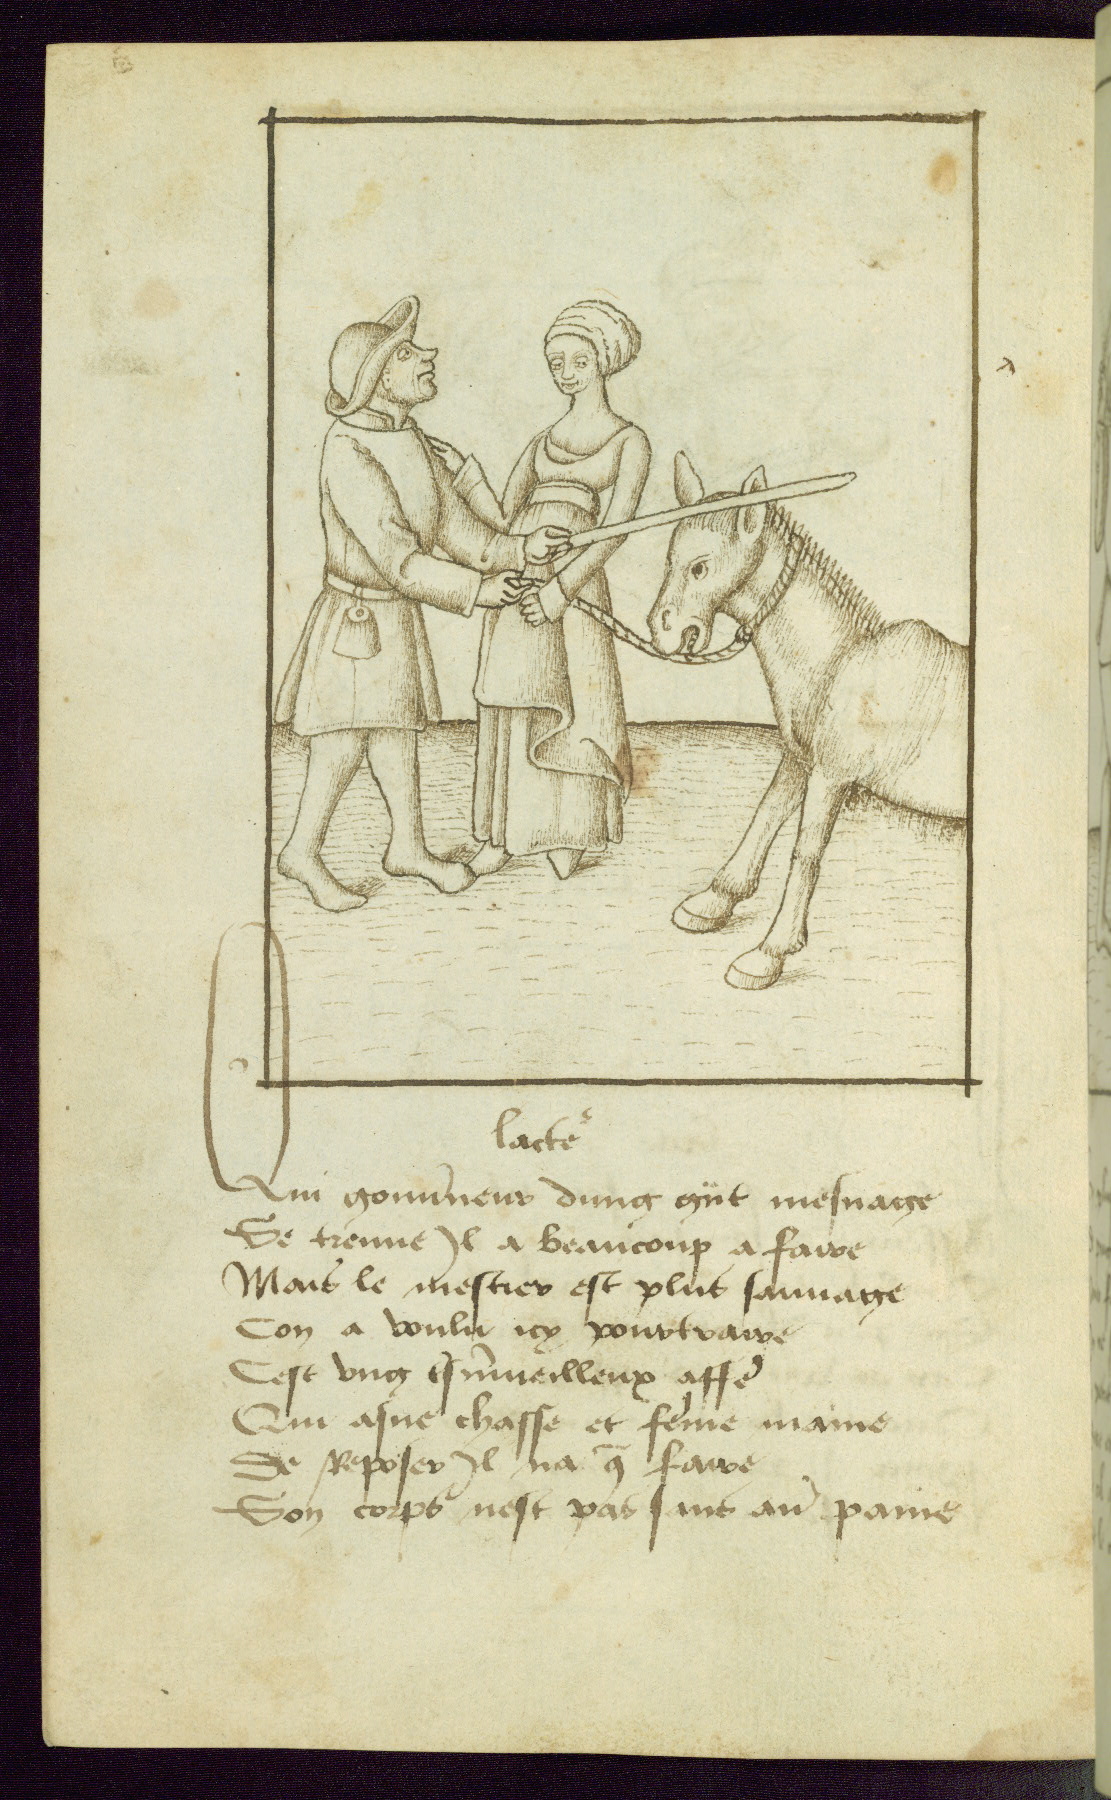 lacteᵉ
Qui gouu̾neur dung gñt mesnage
Se treuue Il a beaucoup a faire
Mais le mestier est plus sauuage
Con a voulu icy pourtraire
Cest vng m̾ueilleux affe̾
Qui asne chasse et fẽme maine
De Reposer Il na q̃ faire
Son corps nest pas sans au̾ paine